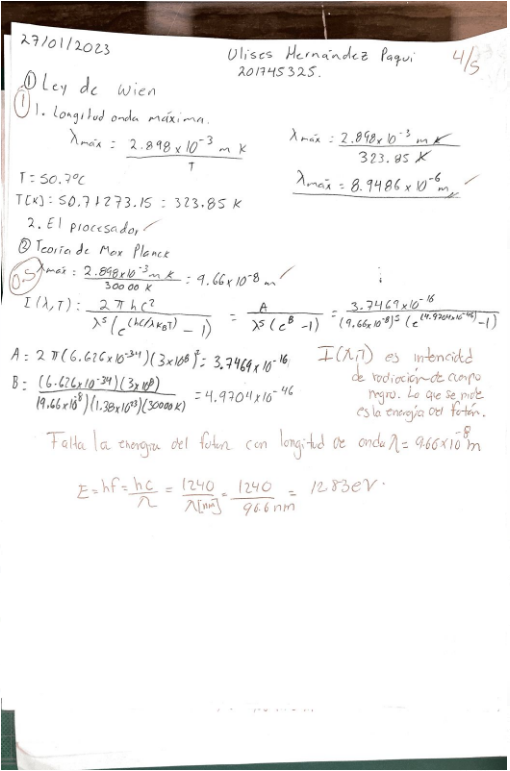 27/01/2023
Ulises Hernández Paqui 4/5
201745325.
① Ley de Wien
① 1. Longitud onda máxima.
λmáx = 2.898 x 10⁻³ m K / T
λmáx = 2.898 x 10⁻³ m K / 323.85 K
T = 50.7°C
λmáx = 8.9486 x 10⁻⁶ m
T[K] = 50.7 + 273.15 = 323.85 K
2. El procesador ✓
② Teoría de Max Planck
0.5 λmáx = 2.898x10⁻³ m K / 30000 K = 9.66x10⁻⁸ m ✓
I(λ,T) = 2πhc² / λ⁵(e^(hc/λKBT) - 1) = A / λ⁵(e^B - 1) = 3.7469x10⁻¹⁶ / (9.66x10⁻⁸)⁵ (e^(4.9704x10⁻⁴⁶) - 1)
A = 2π(6.626x10⁻³⁴)(3x10⁸)² = 3.7469x10⁻¹⁶
B = (6.626x10⁻³⁴)(3x10⁸) / (9.66x10⁸)(1.38x10²³)(30000K) = 4.9704x10⁻⁴⁶
I(λ,T) es intencidad
de radiación de cuerpo
negro. Lo que se pide
es la energía del fotón.
Falta la energía del foton con longitud de onda λ = 9.66x10⁻⁸ m
E = hf = hc/λ = 1240/λ[nm] = 1240/96.6nm = 12.83eV.